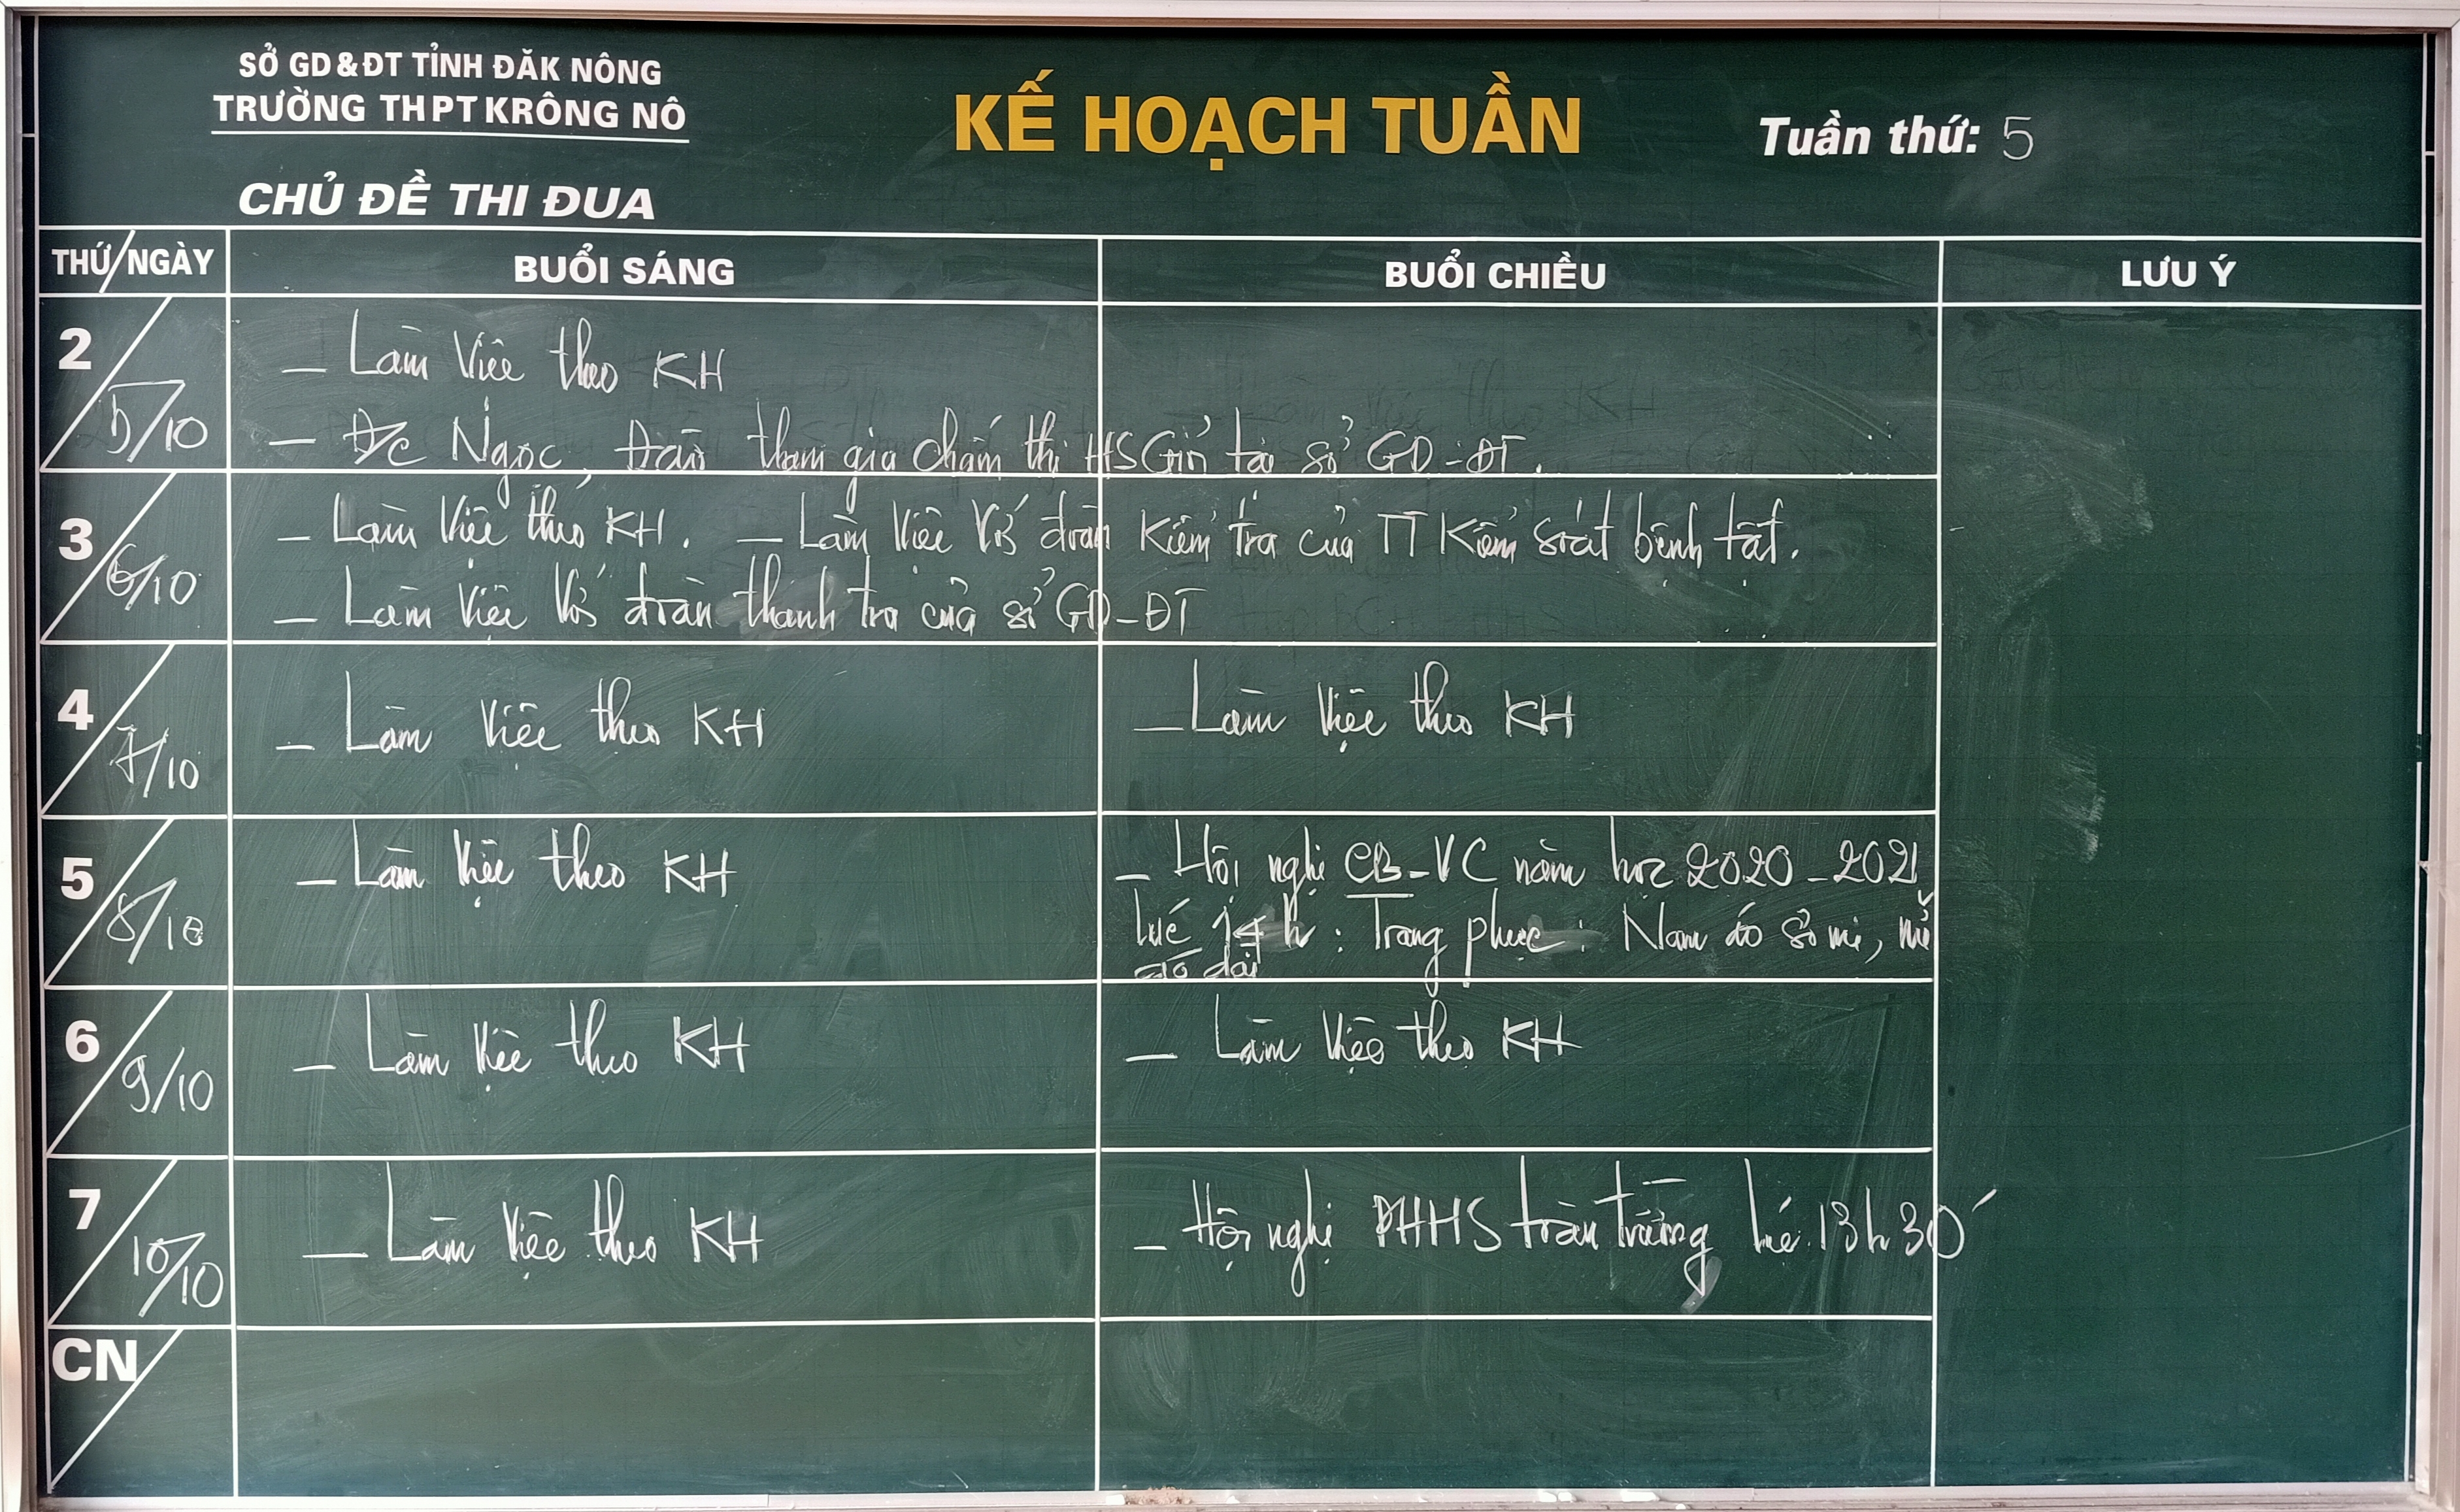 SỞ GD&ĐT TỈNH ĐĂK NÔNG
TRƯỜNG THPT KRÔNG NÔ
KẾ HOẠCH TUẦN
Tuần thứ: 5
CHỦ ĐỀ THI ĐUA
THỨ/NGÀY BUỔI SÁNG BUỔI CHIỀU LƯU Ý
2 5/10
- Làm việc theo KH
- Đ/c Ngọc, Đoàn tham gia chấm thi HS Giỏi tại sở GD-ĐT.
3 6/10
- Làm việc theo KH. - Làm việc với đoàn kiểm tra của TT Kiểm soát bệnh tật.
- Làm việc với đoàn thanh tra của sở GD-ĐT
4 7/10
- Làm việc theo KH
- Làm việc theo KH
5 8/10
- Làm việc theo KH
- Hội nghị CB-VC năm học 2020-2021
lúc 14h: Trang phục: Nam áo sơ mi, nữ
áo dài
6 9/10
- Làm việc theo KH
- Làm việc theo KH
7 10/10
- Làm việc theo KH
- Hội nghị PHHS toàn trường lúc 13h30'
CN